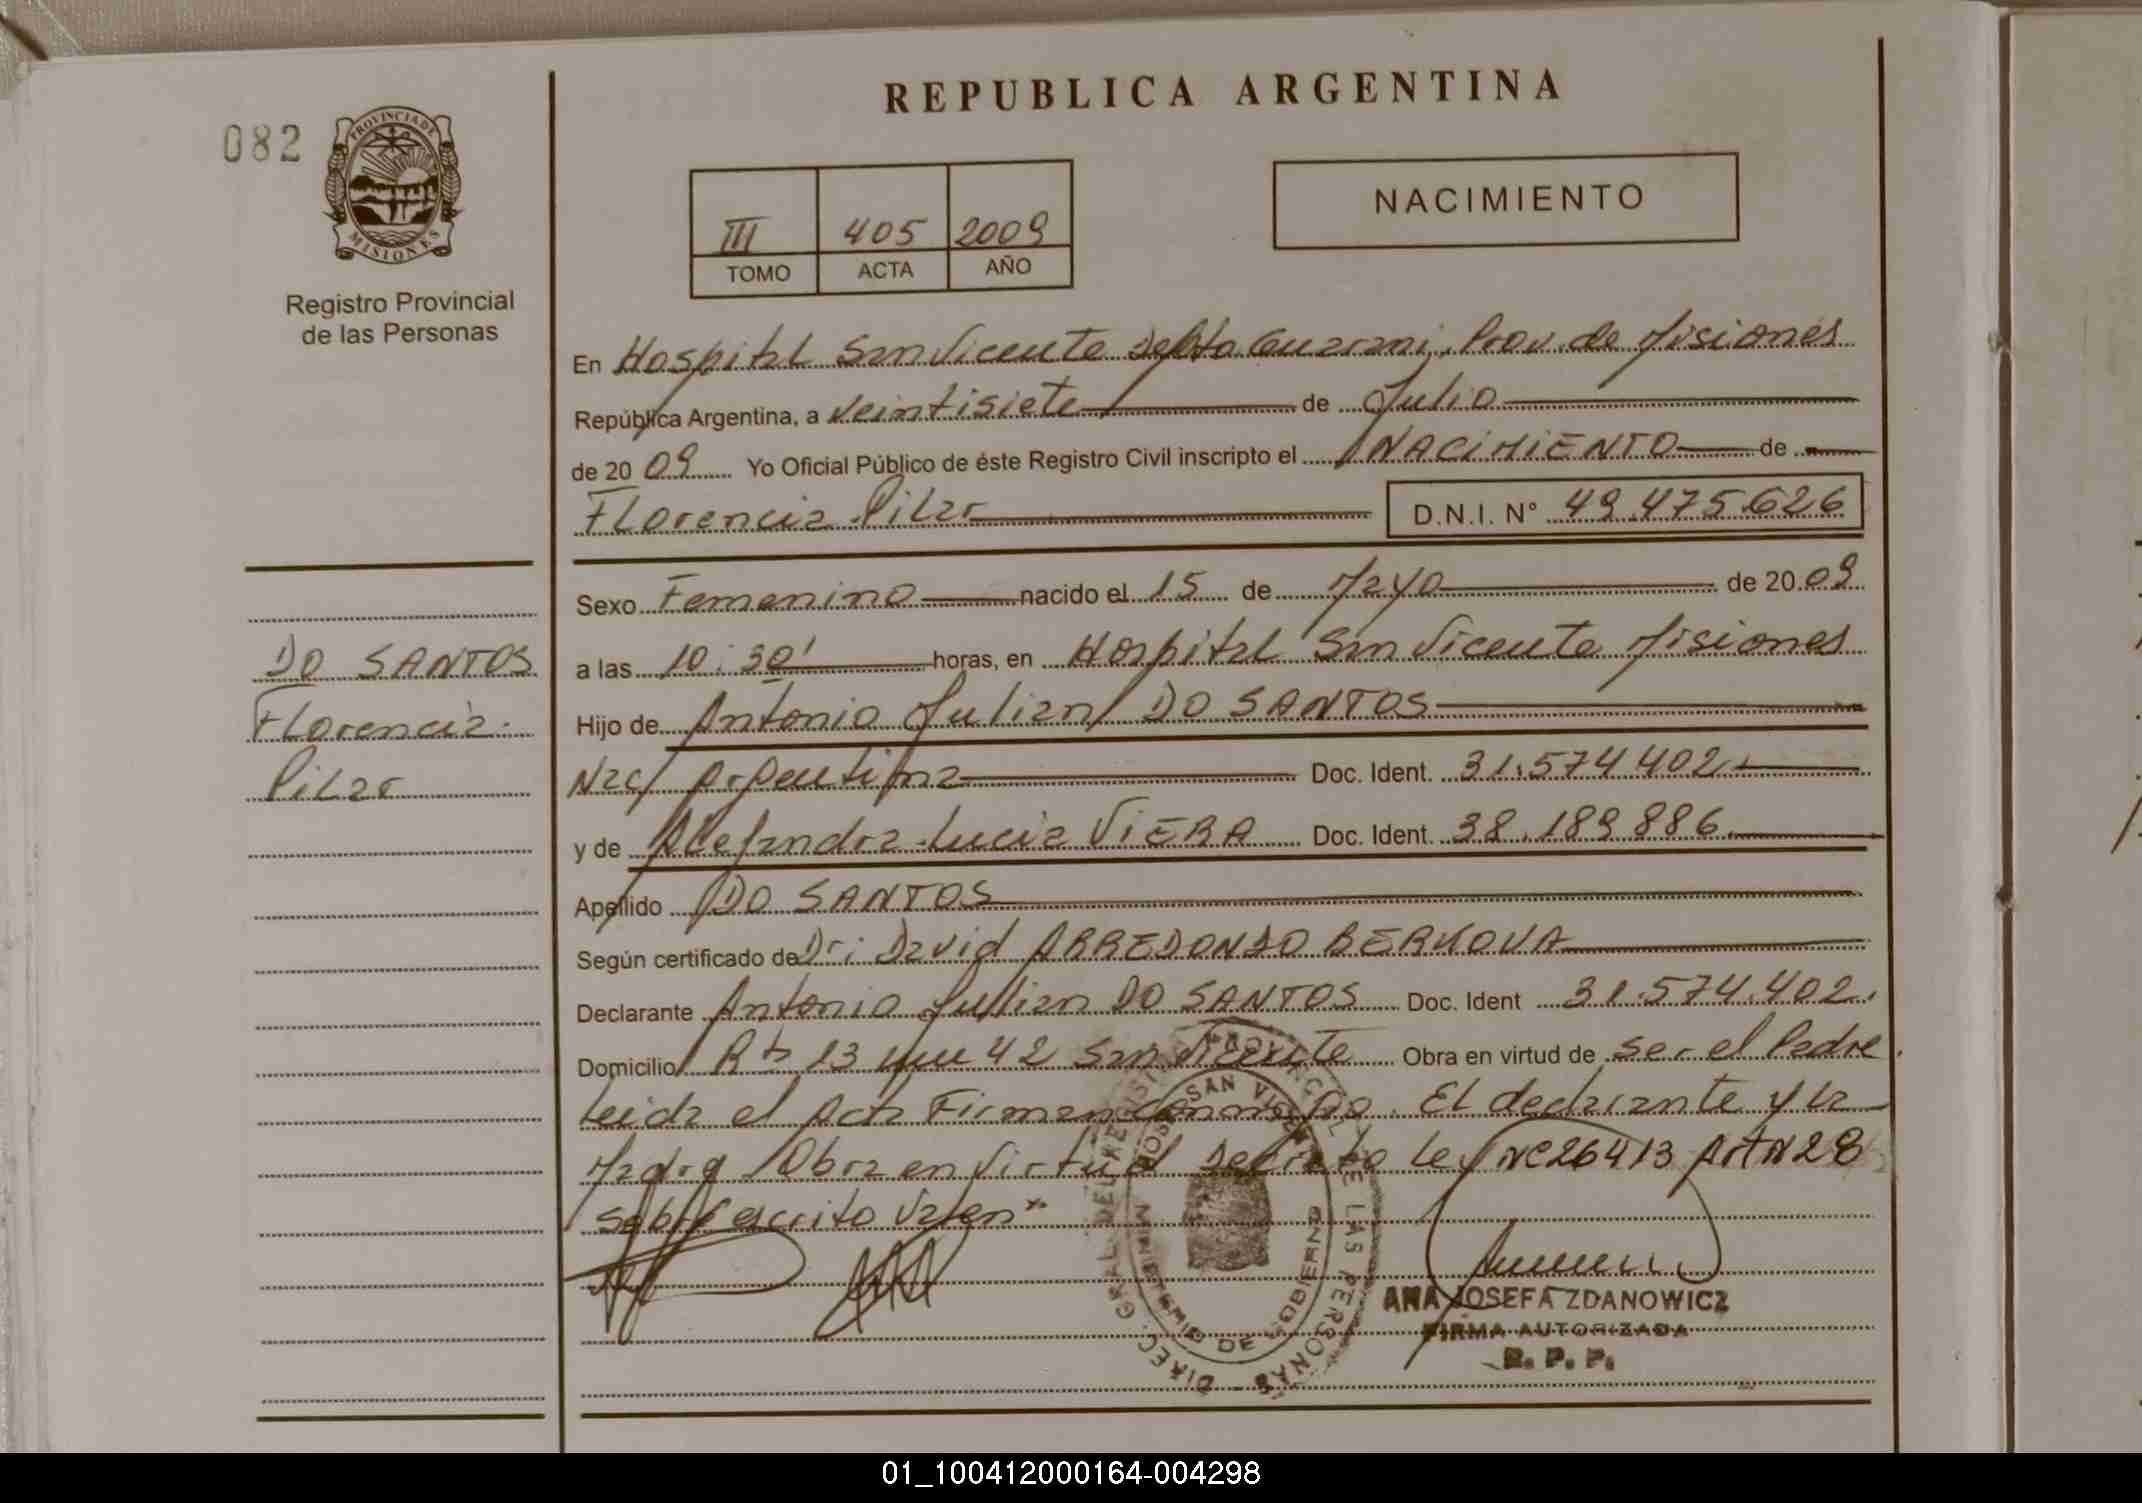 REPUBLICA ARGENTINA
082
PROVINCIA DE
MISIONES
Registro Provincial
de las Personas
III 405 2009
TOMO ACTA AÑO
NACIMIENTO
En Hospital San Vicente Depto Guarani, Prov. de Misiones
República Argentina, a veintisiete de Julio
de 20 09 Yo Oficial Público de éste Registro Civil inscripto el NACIMIENTO de
Florencia Pilar D.N.I. N° 49.475.626
Sexo Femenino nacido el 15 de Mayo de 20 09
a las 10:30' horas, en Hospital San Vicente Misiones
Hijo de Antonio Julian DO SANTOS
Nac/ Argentina Doc. Ident. 31.574.402
y de Alejandra Lucia VIERA Doc. Ident. 38.189.886
Apellido DO SANTOS
Según certificado de Dr: David ARREDONDO
Declarante Antonio Julian DO SANTOS Doc. Ident 31.574.402.
Domicilio Rta 13 42 San Vicente Obra en virtud de ser el Padre
Leida el Acta Firman Conmigo. El declarante y la
Madre Obra en Virtud Decreto Ley Nº 26413 Art N 28
sobre escrito Valen
DO SANTOS
Florencia
Pilar
DIREC. GRAL. DEL REGIST. PROVINCIAL DE LAS PERSONAS
HOSP. SAN VICEN
MINISTERIO DE GOBIERNO
ANA JOSEFA ZDANOWICZ
FIRMA AUTORIZADA
R. P. P.
01_100412000164-004298